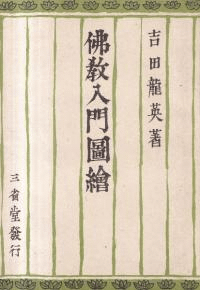 吉田龍英著
佛教入門圖繪
三省堂發行